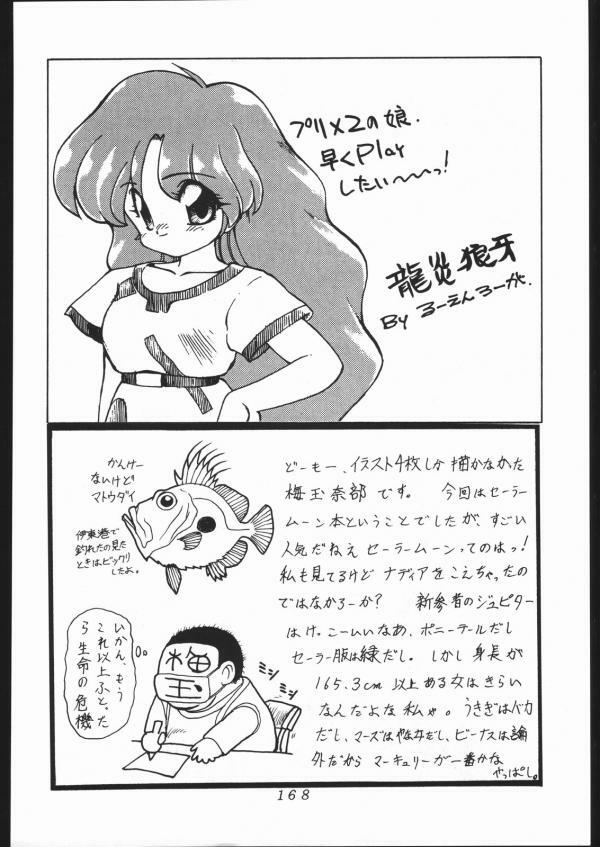 プリメ2の娘.
早くPlay
したい〜〜っ!
龍炎狼牙
By るーえんろーが.
かんけー
ないけど
マトウダイ
伊東港で
釣れたの見た
ときはビックリ
したよ。
いかん、もう
これ以上ふとった
ら生命の危機
梅
玉
ミシ
ミシ
どーもー、イラスト4枚しか描かなかた
梅玉奈部です。 今回はセーラー
ムーン本ということでしたが、すごい
人気だねえ セーラームーンってのはっ!
私も見てるけど ナディアをこえちゃったの
ではなかろーか? 新参者のジュピター
はけっこーいいなあ、ポニーテールだし
セーラー服は緑だし。しかし 身長が
165.3cm 以上ある女はきらい
なんだよな私ゃ。 うさぎはバカ
だし、マーズはやな女だし、ビーナスは論
外だから マーキュリーが一番かな
やっぱし。
168